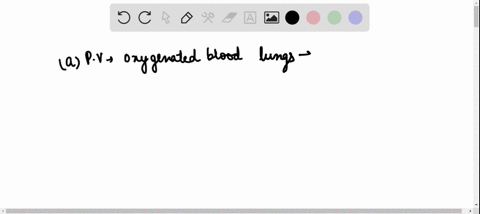 (a) P.V → oxygenated blood lungs →